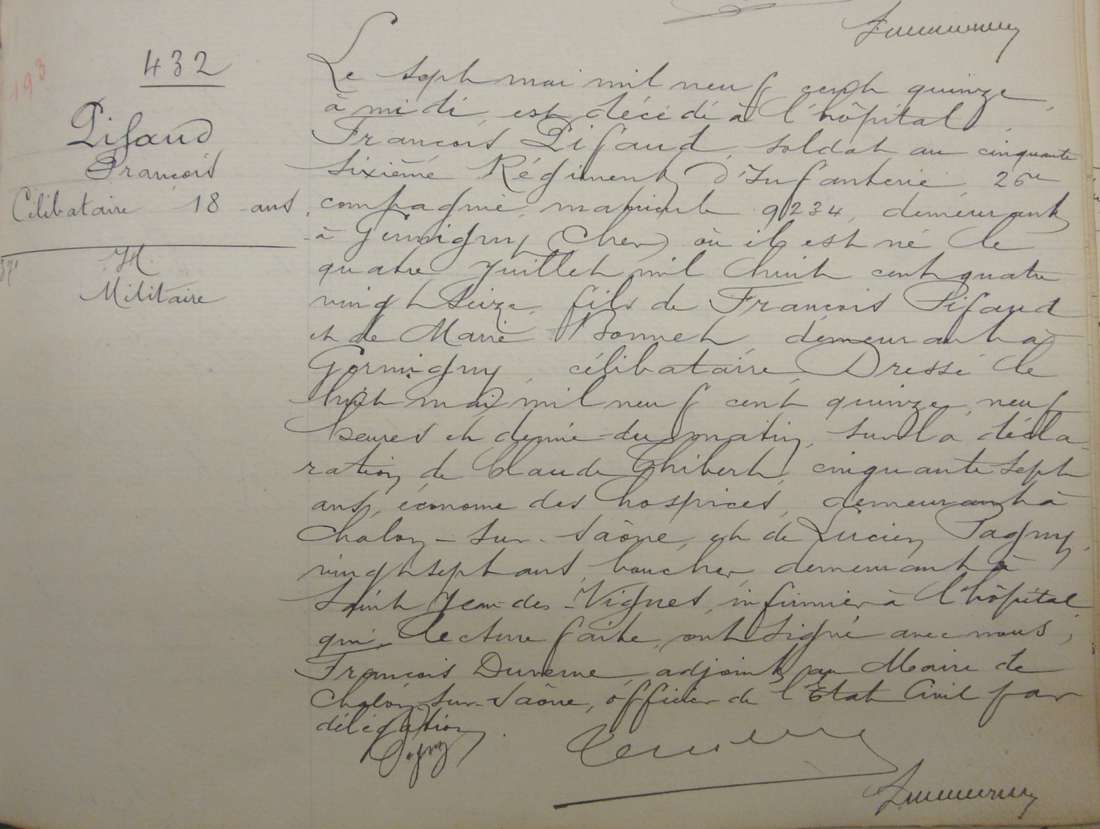 432
Pifaud
François
Célibataire 18 ans
M
Militaire
Le sept mai mil neuf cent quinze,
à midi, est décédé à l'hôpital
François Pifaud, soldat au cinquante
sixième Régiment d'Infanterie, 26e
compagnie, matricule 9234, demeurant
à Germigny (Cher) où il est né le
quatre Juillet mil huit cent quatre
vingt seize, fils de François Pifaud
et de Marie Bonnet, demeurant à
Germigny, célibataire. Dressé le
huit mai mil neuf cent quinze, neuf
heures et demie du matin, sur la décla
ration de Claude Thibert, cinquante sept
ans, économe des hospices, demeurant à
Chalon-sur-Saône, et de Lucien Pagny,
vingt sept ans, boucher, demeurant à
Saint Jean-des-Vignes, infirmier à l'hôpital
qui, lecture faite, ont signé avec nous,
François Duverne, adjoint au Maire de
Chalon-sur-Saône, officier de l'Etat Civil par
délégation.
Pagny